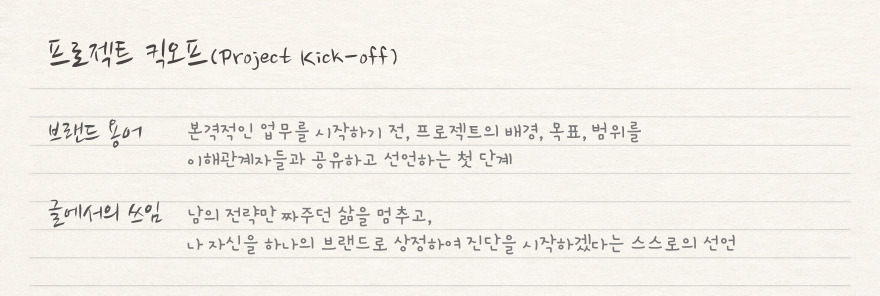 프로젝트 킥오프(Project Kick-off)
브랜드 용어 본격적인 업무를 시작하기 전, 프로젝트의 배경, 목표, 범위를
이해관계자들과 공유하고 선언하는 첫 단계
글에서의 쓰임 남의 전략만 짜주던 삶을 멈추고,
나 자신을 하나의 브랜드로 상정하여 진단을 시작하겠다는 스스로의 선언